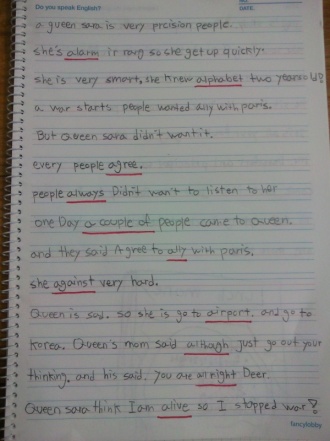 Do you speak English?
NO.
DATE.
a queen sara is very prcision people.
she's alarm ir rang so she get up quickly.
she is very smort, she knew alphabet two years old?
a war starts people wanted ally with paris.
But Queen sara didn't want it.
every people agree.
people always Didn't wan't to listen to her
one Day a couple of people came to Queen.
and they said Agree to ally with paris.
she against very hard.
Queen is sad. so she is go to airport. and go to
Korea. Queen's mom said althagh just go out your
thinking. and his said. You are allright Deer.
Queen sara think I am alive so I stopped war?
fancylobby